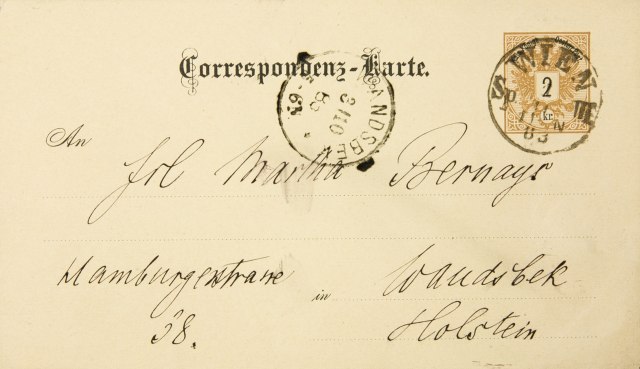 Correspondenz-Karte.
WIEN
2
Kr.
83
WANDSBEK
3/10
83
An
Frl Martha Bernays
Hamburgerstrasse in Wandsbek
38. Holstein